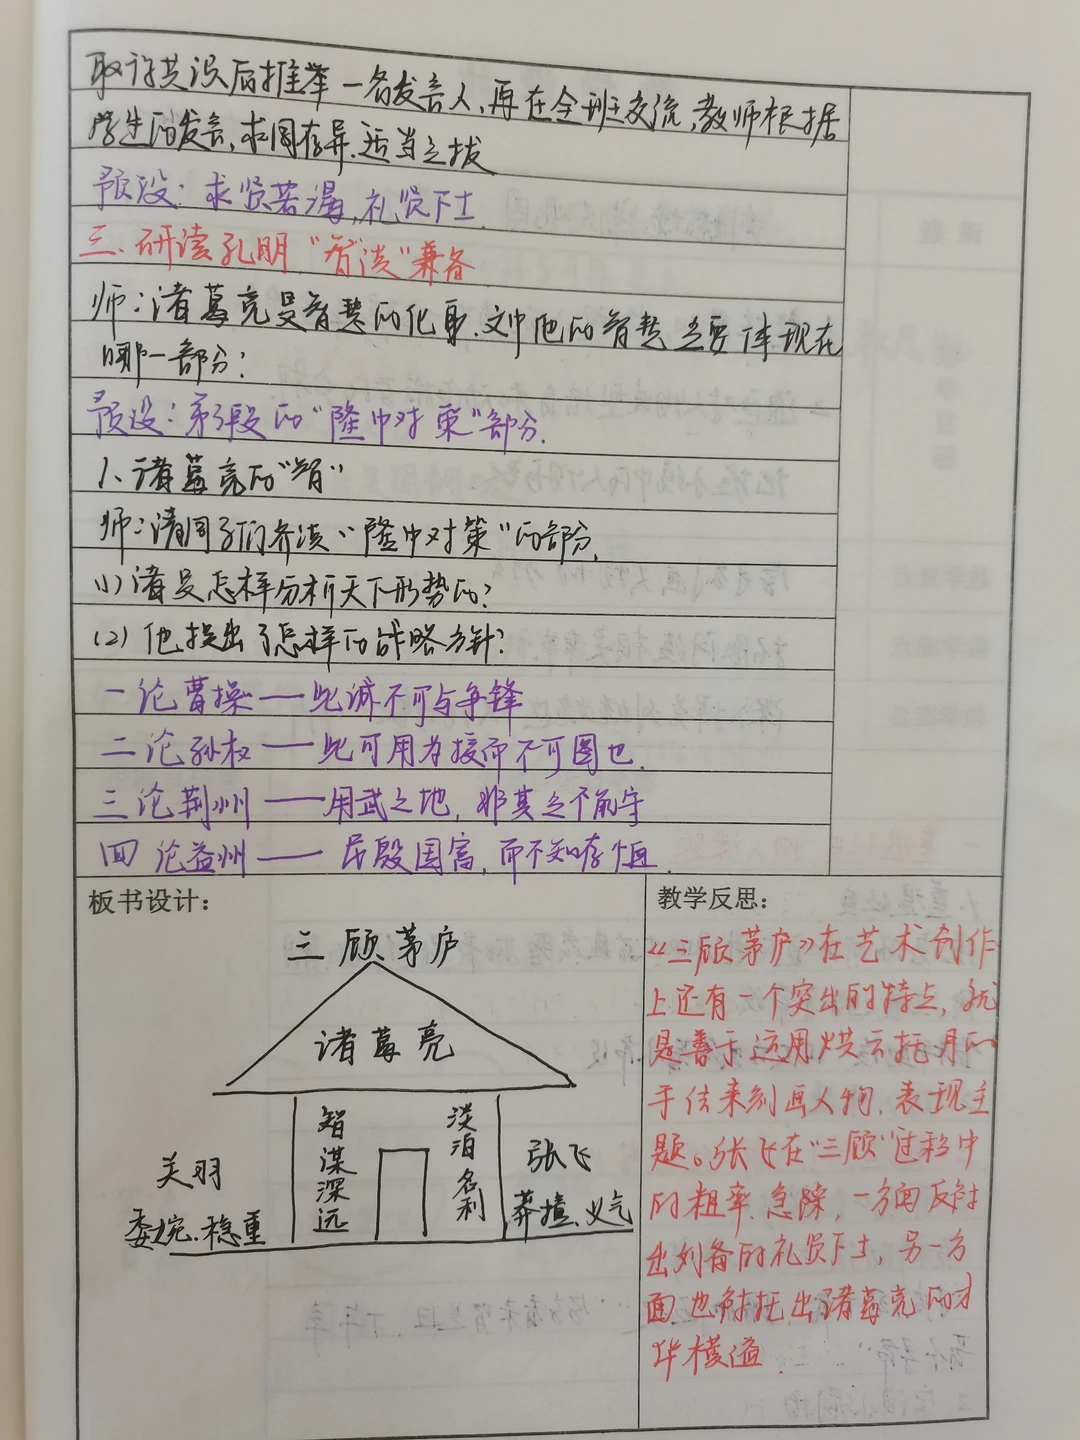 取得共识后推举一名发言人,再在全班交流,教师根据
学生的发言,求同存异.适当之拔
预设:求贤若渴,礼贤下士.
三.研读孔明,"智谈"兼备
师:诸葛亮是智慧的化身.文中他的智慧主要体现在
哪一部分?
预设:第3段的"隆中对策"部分.
1.诸葛亮的"智"
师:请同学们齐读"隆中对策"的部分.
(1)诸是怎样分析天下形势的?
(2)他提出了怎样的战略方针?
一论曹操——此诚不可与争锋
二论孙权——此可用为援而不可图也.
三论荆州——用武之地,非其主不能守
四论益州——民殷国富,而不知存恤.
板书设计:
三顾茅庐
诸葛亮
智谋深远
淡泊名利
关羽
委婉.稳重
张飞
莽撞、义气
教学反思:
《三顾茅庐》在艺术创作
上还有一个突出的特点,就
是善于运用烘云托月的
手法来刻画人物,表现主
题。张飞在"三顾"过程中
的粗率.急躁,一方面反衬
出刘备的礼贤下士,另一方
面也衬托出诸葛亮的才
华横溢.